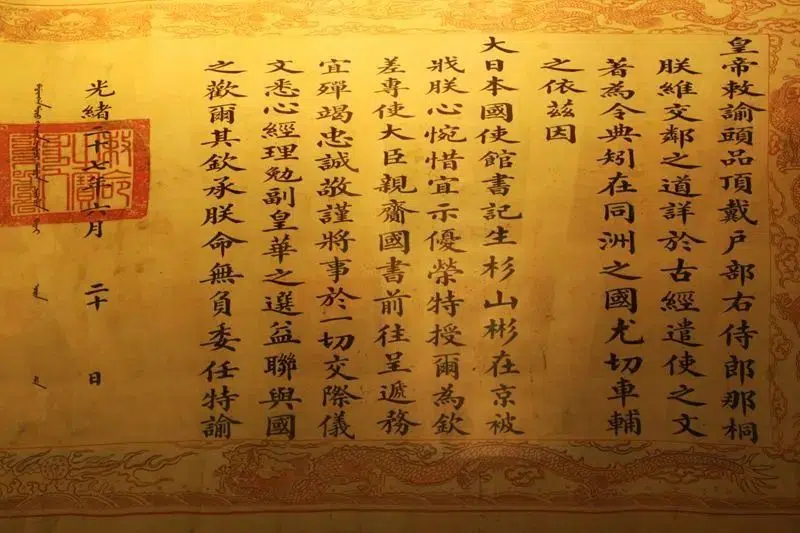 皇帝敕諭頭品頂戴戶部右侍郎那桐
朕維交鄰之道詳於古經遣使之文
著為令典矧在同洲之國尤切車輔
之依茲因
大日本國使館書記生杉山彬在京被
戕朕心惋惜宜示優榮特授爾為欽
差專使大臣親齎國書前往呈遞務
宜殫竭忠誠敬謹將事於一切交際儀
文悉心經理勉副皇華之選益聯與國
之歡爾其欽承朕命無負委任特諭
光緒二十七年六月 二十 日
敕命之寶